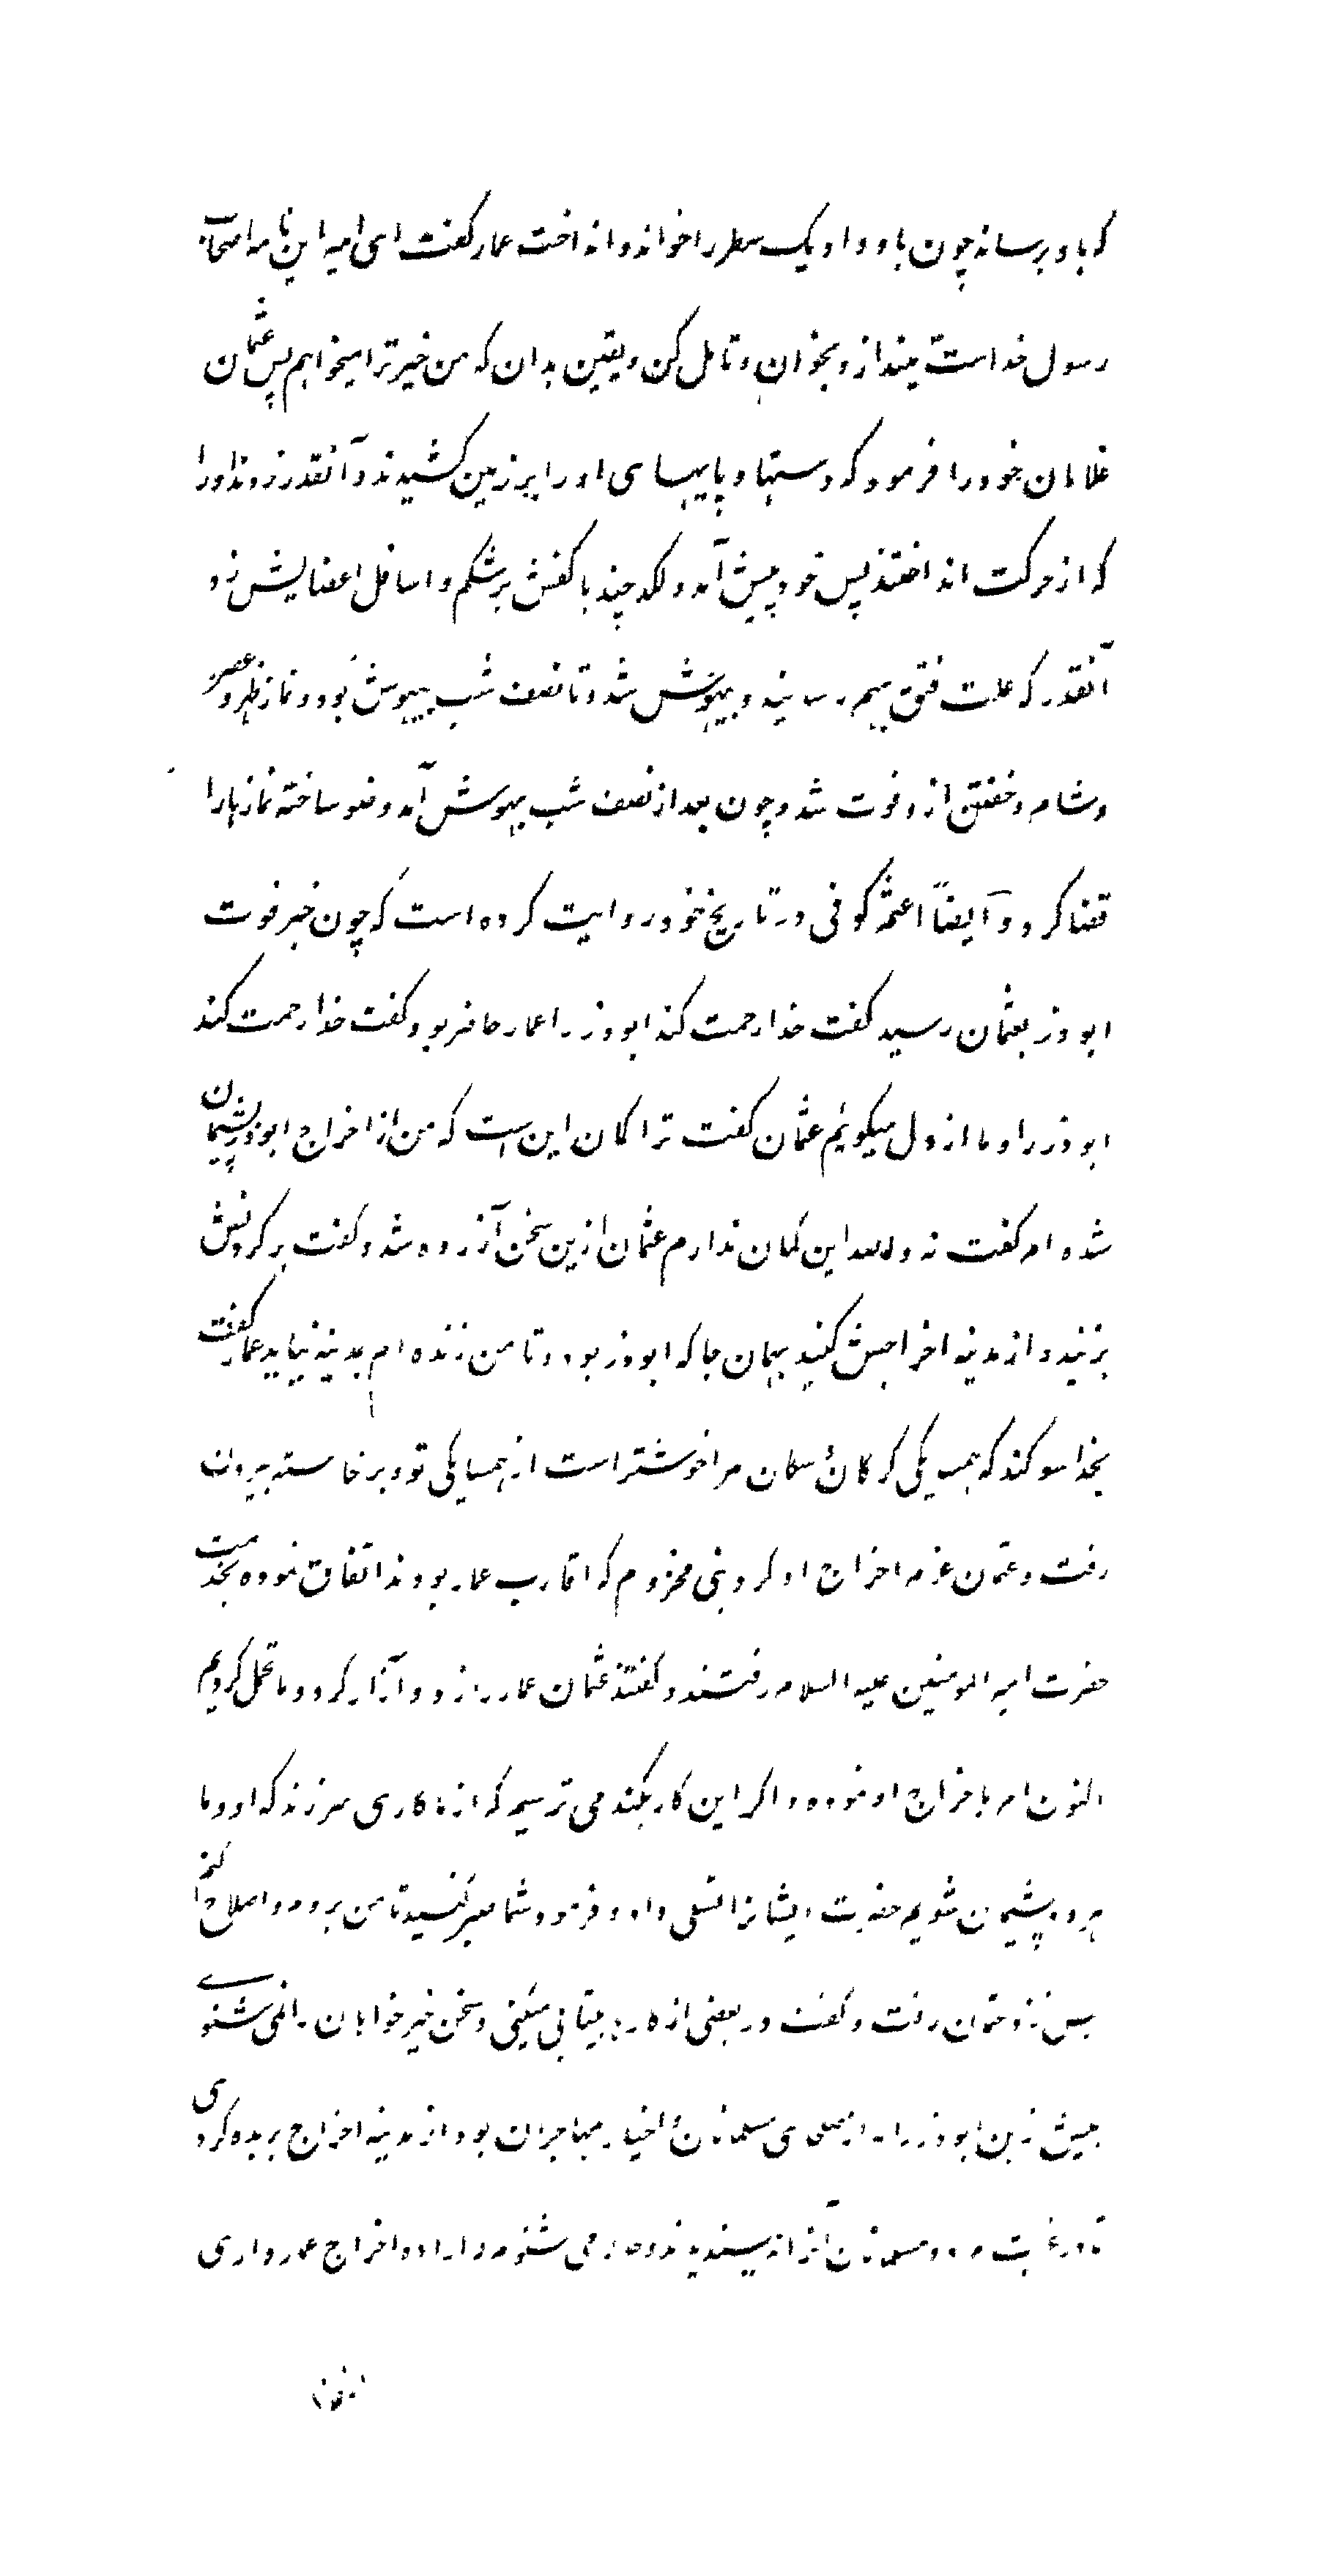 که باو برساند چون باو داد یک سطر را خواند و انداخت عمار گفت ای امیر این نامه اصحاب
رسول خداست مینداز و بخوان و تامل کن و یقین بدان که من خیر ترا میخواهم پس عثمان
غلامان خود را فرمود که دستها و پایهای او را بر زمین کشیدند و آنقدر زدند او را
که از حرکت انداختند پس خود پیش آمد و لکد چند با کفش بر شکم و اسافل اعضایش زد
آنقدر که علت فتق بهم رسانید و بیهوش شد و تا نصف شب بیهوش بود و نماز ظهر و عصر
و شام و خفتن از و فوت شد و چون بعد از نصف شب بهوش آمد وضو ساخته نمازها را
قضا کرد و ایضاً اعثم کوفی در تاریخ خود روایت کرده است که چون خبر فوت
ابوذر بعثمان رسید کفت خدا رحمت کند ابوذر را عمار حاضر بود کفت خدا رحمت کند
ابوذر را و ما از دل میکوئیم عثمان کفت ترا کمان این است که من از اخراج ابوذر پشیمان
شده ام کفت نه والله این کمان ندارم عثمان ازین سخن آزرده شد و کفت بر کردنش
بزنید و از مدینه اخراجش کنید بهمان جا که ابوذر بود و تا من زنده ام بمدینه نیاید عمار کفت
بخدا سوکند که همسایکی کرکان و سکان مرا خوشتر است از همسایکی تو و برخاسته بیرون
رفت و عثمان عزم اخراج او کرد بنی مخزوم که اقارب عمار بودند اتفاق نموده بخدمت
حضرت امیر المومنین علیه السلام رفتند و کفتند عثمان عمار را زد و آزار کرد و ما تحمل کردیم
اکنون امر باخراج او نموده و اکر این کار بکند می ترسیم که از ما کاری سر زند که او و ما
هر دو پشیمان شویم حضرت ایشانرا تسلی داد و فرمود شما صبر کنید تا من بروم و اصلاح آن کنم
پس نزد عثمان رفت و کفت در بعضی از کارها بیتابی میکنی و سخن خیر خواهان را نمی شنوی
پیش ازین ابوذر را که از صلحای مسلمانان و اخیار مهاجران بود از مدینه اخراج بربذه کردی
تا در غربت مرد و مسلمانان آنرا نه پسندیدند و حالا می شنوم که اراده اخراج عمار داری